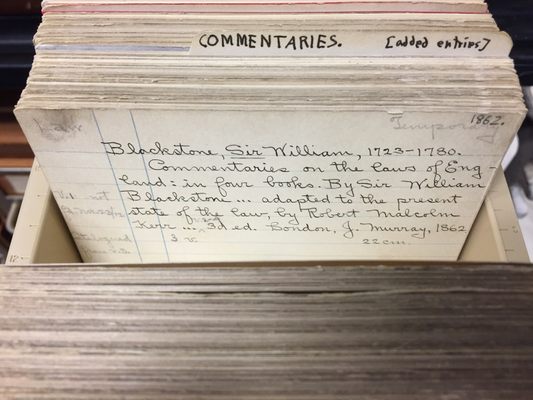 COMMENTARIES. [added entries]
1862.
Temporary
Blackstone, Sir William, 1723-1780.
Commentaries on the laws of Eng-
land: in four books. By Sir William
Blackstone ... adapted to the present
state of the law, by Robert Malcolm
Kerr ... 3d ed. London, J. Murray, 1862
3 v. 22 cm.